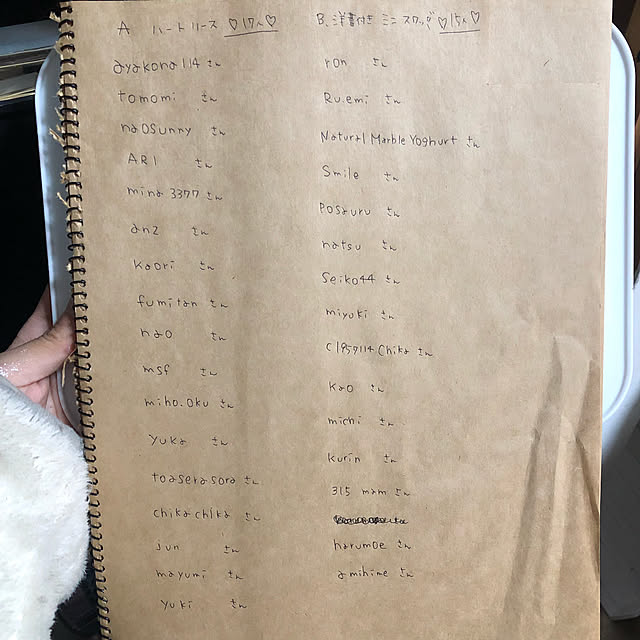 A ハートリース ♡17人♡
ayakona114 さん
tomomi さん
naosunny さん
ARI さん
mina3377 さん
an2 さん
kaori さん
fumitan さん
nao さん
msf さん
miho.oku さん
yuka さん
toaserasora さん
chikachika さん
jun さん
mayumi さん
yuki さん
B. 洋書付き ミニ スワッグ ♡15人♡
ron さん
Ru.emi さん
Natural Marble Yoghurt さん
Smile さん
posauru さん
natsu さん
Seiko44 さん
miyuki さん
c1959114Chika さん
kao さん
michi さん
kurin さん
315 mam さん
harumoe さん
amihime さん